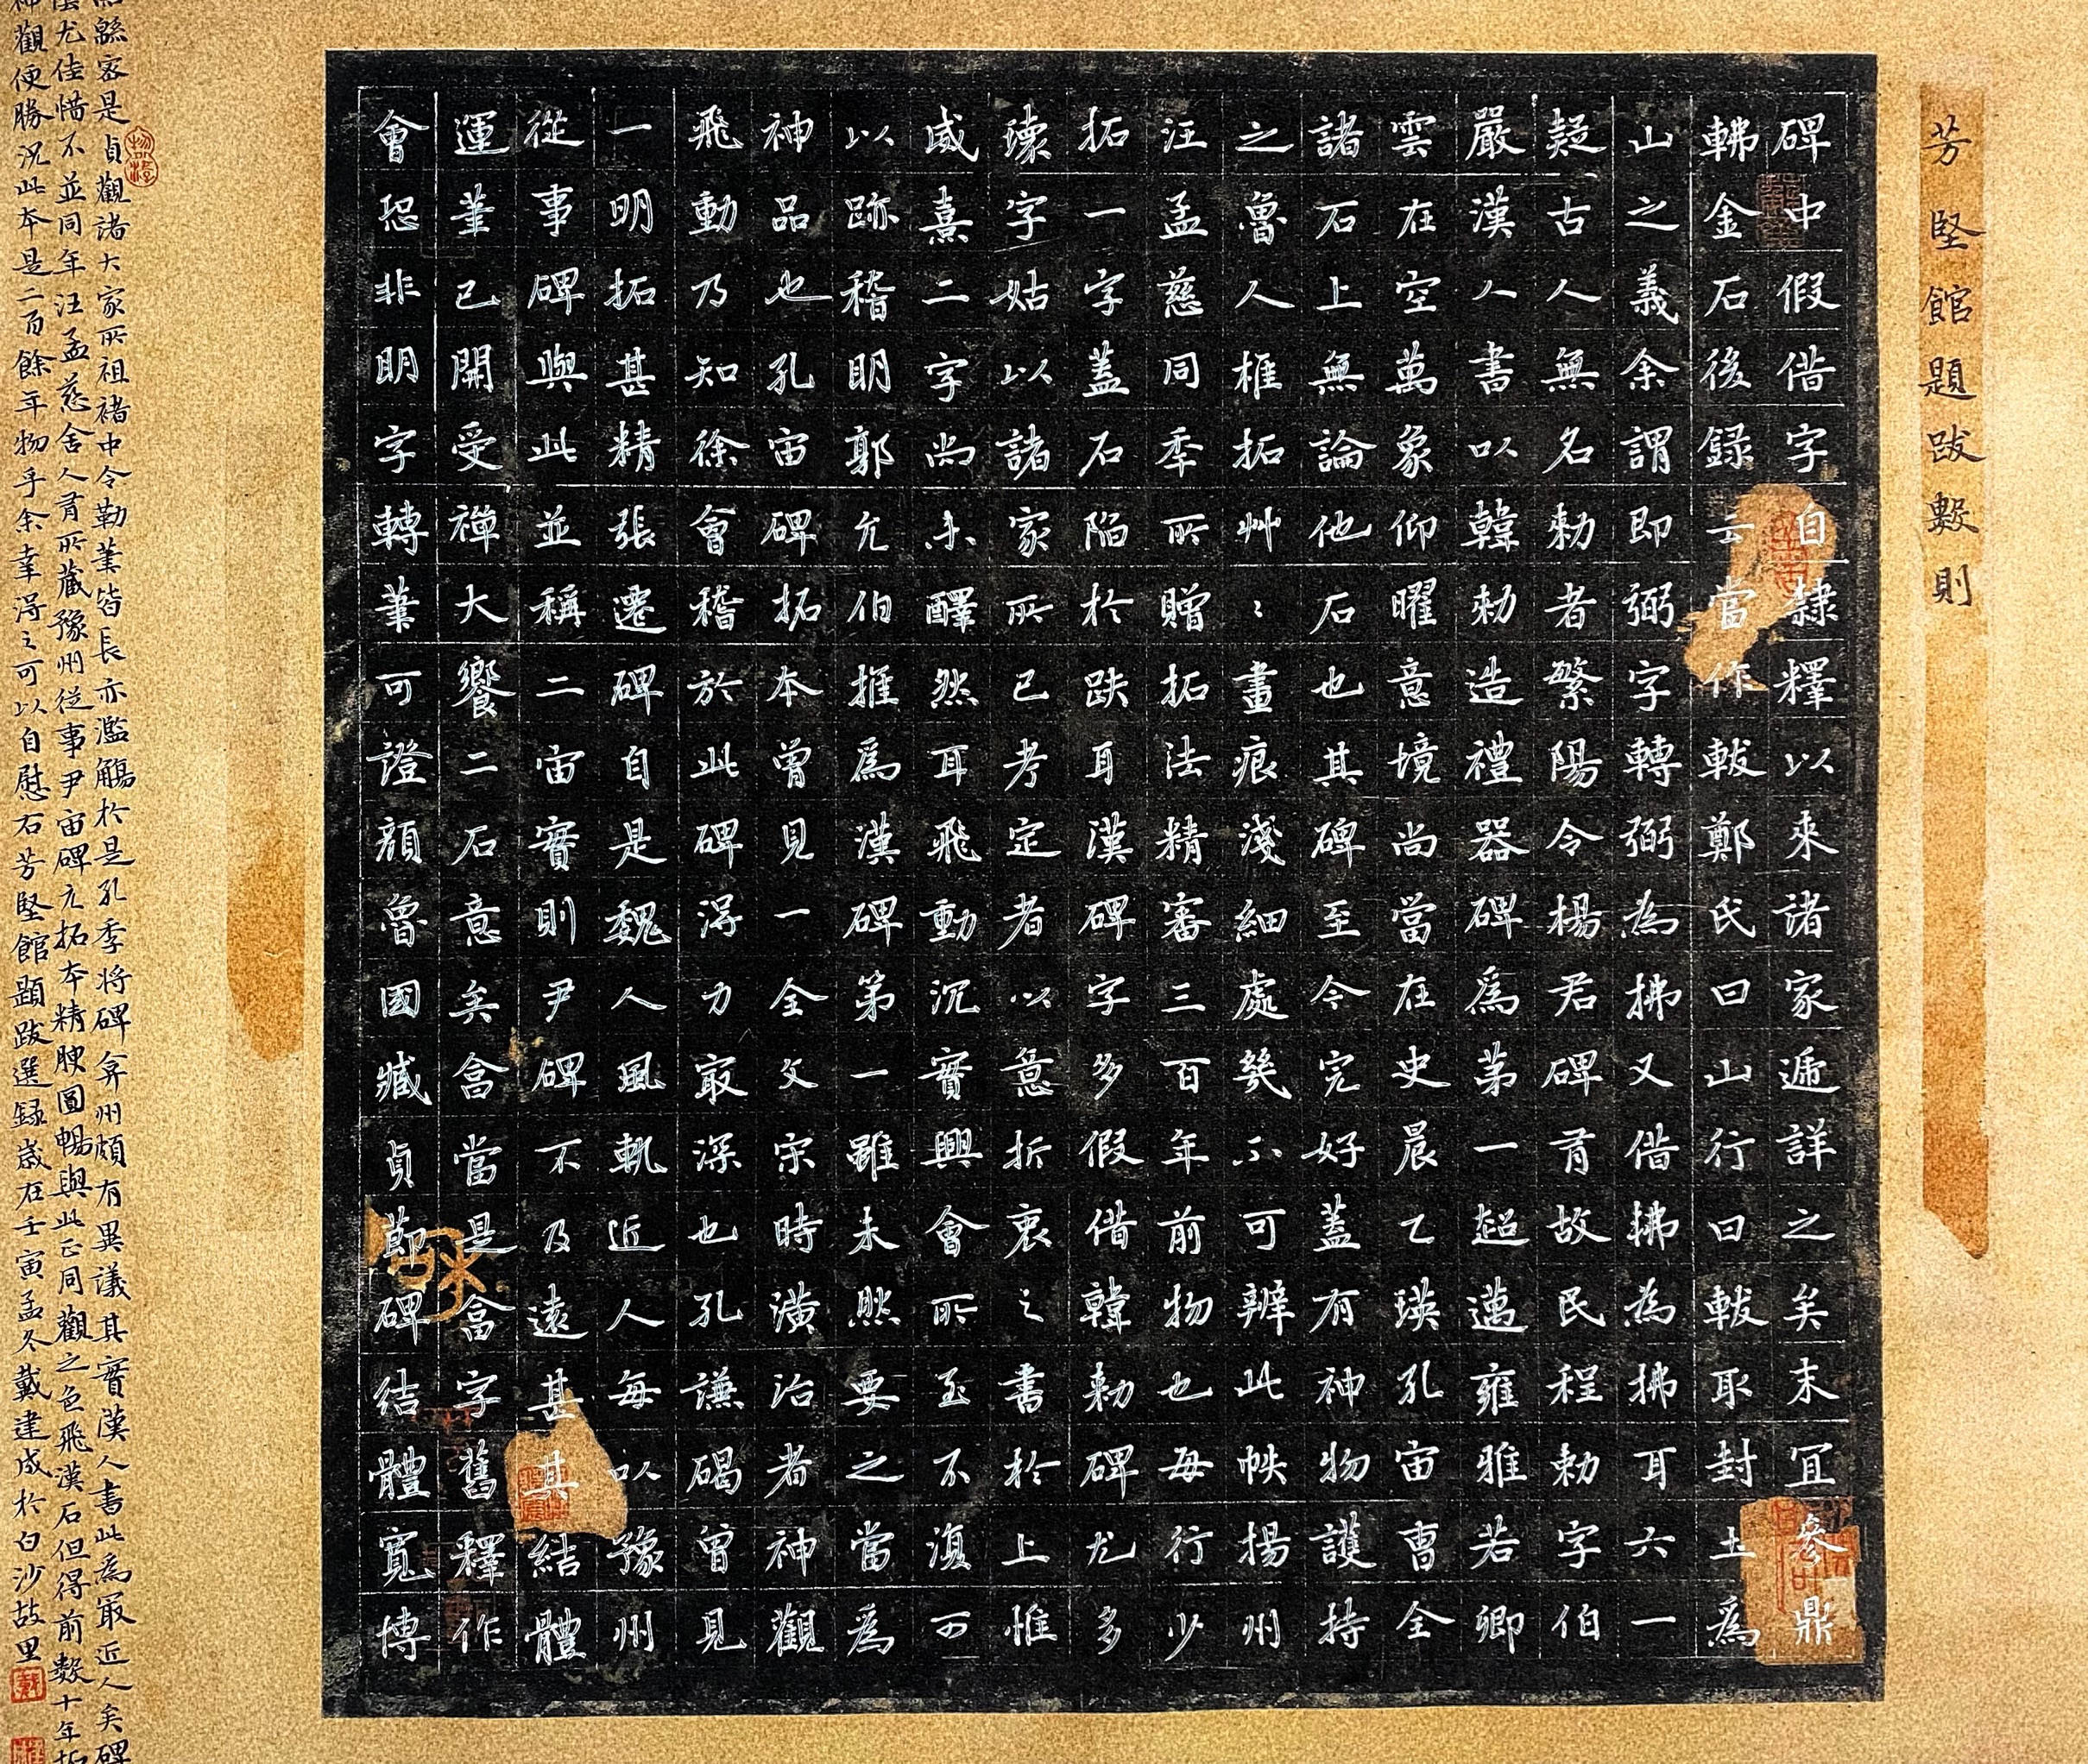 芳堅館題跋數則
碑中假借字自隸釋以來諸家遞詳之矣末宜參鼎
軵金石後録云當作軷鄭氏曰山行曰軷取封土爲
山之義余謂即弼字轉弼為拂又借拂為拂耳六一
疑古人無名勑者繁陽令楊君碑有故民程勑字伯
嚴漢人書以韓勑造禮器碑爲苐一超邁雍雅若卿
雲在空萬象仰曜意境尚當在史晨乙瑛孔宙曹全
諸石上無論他石也其碑至今完好蓋有神物護持
之魯人椎拓艸〻畫痕淺細處幾不可辨此帙揚州
汪孟慈同年所贈拓法精審三百年前物也每行少
拓一字蓋石陷於趺耳漢碑字多假借韓勑碑尤多
瓌字姑以諸家所已考定者以意折衷之書於上惟
咸熹二字尚未醳然耳飛動沉實興會所至不復可
以跡稽明郭允伯推爲漢碑第一雖未然要之當爲
神品也孔宙碑拓本曾見一全文宋時潢治者神觀
飛動乃知徐會稽於此碑淂力㝡深也孔謙碣曾見
一明拓甚精張遷碑自是魏人風軌近人每以豫州
從事碑與此並稱二宙實則尹碑不及遠甚其結體
運筆已開受禪大饗二石意矣畣當是畣字舊釋作
會恐非明字轉筆可證顏魯國臧貞節碑結體寬博
緜密是貞觀諸大家所祖褚中令勒筆皆長亦濫觴於是孔季将碑弇州頗有異議其實漢人書此為㝡近人矣碑
尤佳惜不並同年汪孟慈舍人有所藏豫州従事尹宙碑元拓本精腴圓暢與此正同觀之色飛漢石但得前數十年拓
神觀便勝況此本是二百餘年物乎余幸淂之可以自慰石芳堅館題跋選録歲在壬寅孟冬戴建成於白沙故里